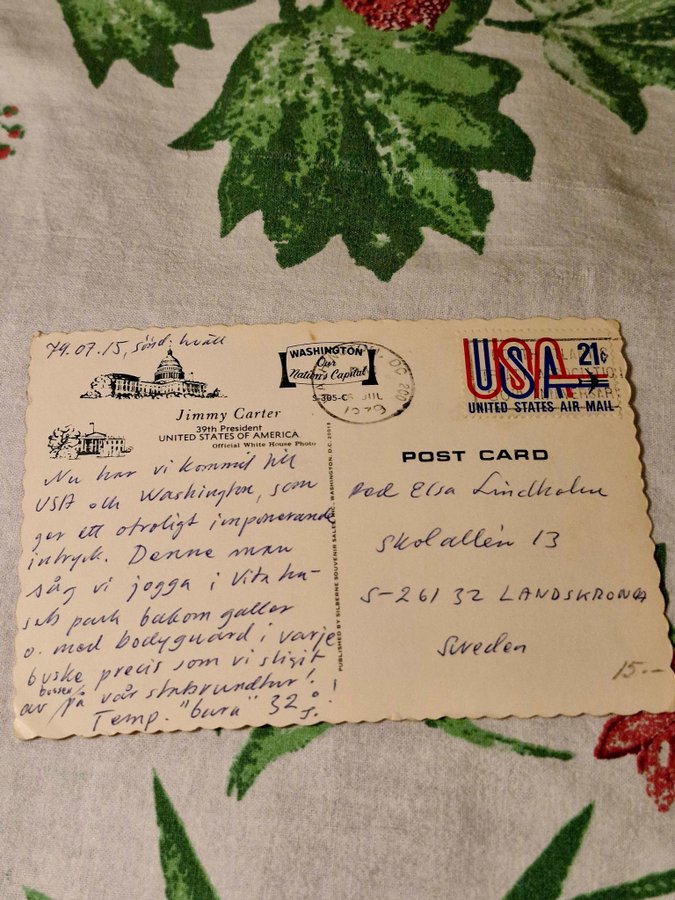 79.07.15, sönd. kväll
WASHINGTON
Our
Nation's Capital
S-305-C
JUL
1979
USA 21¢
UNITED STATES AIR MAIL
Jimmy Carter
39th President
UNITED STATES OF AMERICA
Official White House Photo
Nu har vi kommit till
USA och Washington, som
ger ett otroligt imponerande
intryck. Denne man
såg vi jogga i Vita hu-
sets park bakom galler
o. med bodyguard i varje
buske precis som vi stigit
av bussen på vår stadsrundtur!
Temp. "bara" 32°!
PUBLISHED BY SILBERNE SOUVENIR SALES INC., WASHINGTON, D.C. 20018
POST CARD
Elsa Lindholm
Skolallén 13
S-261 32 LANDSKRONA
Sweden
15.-